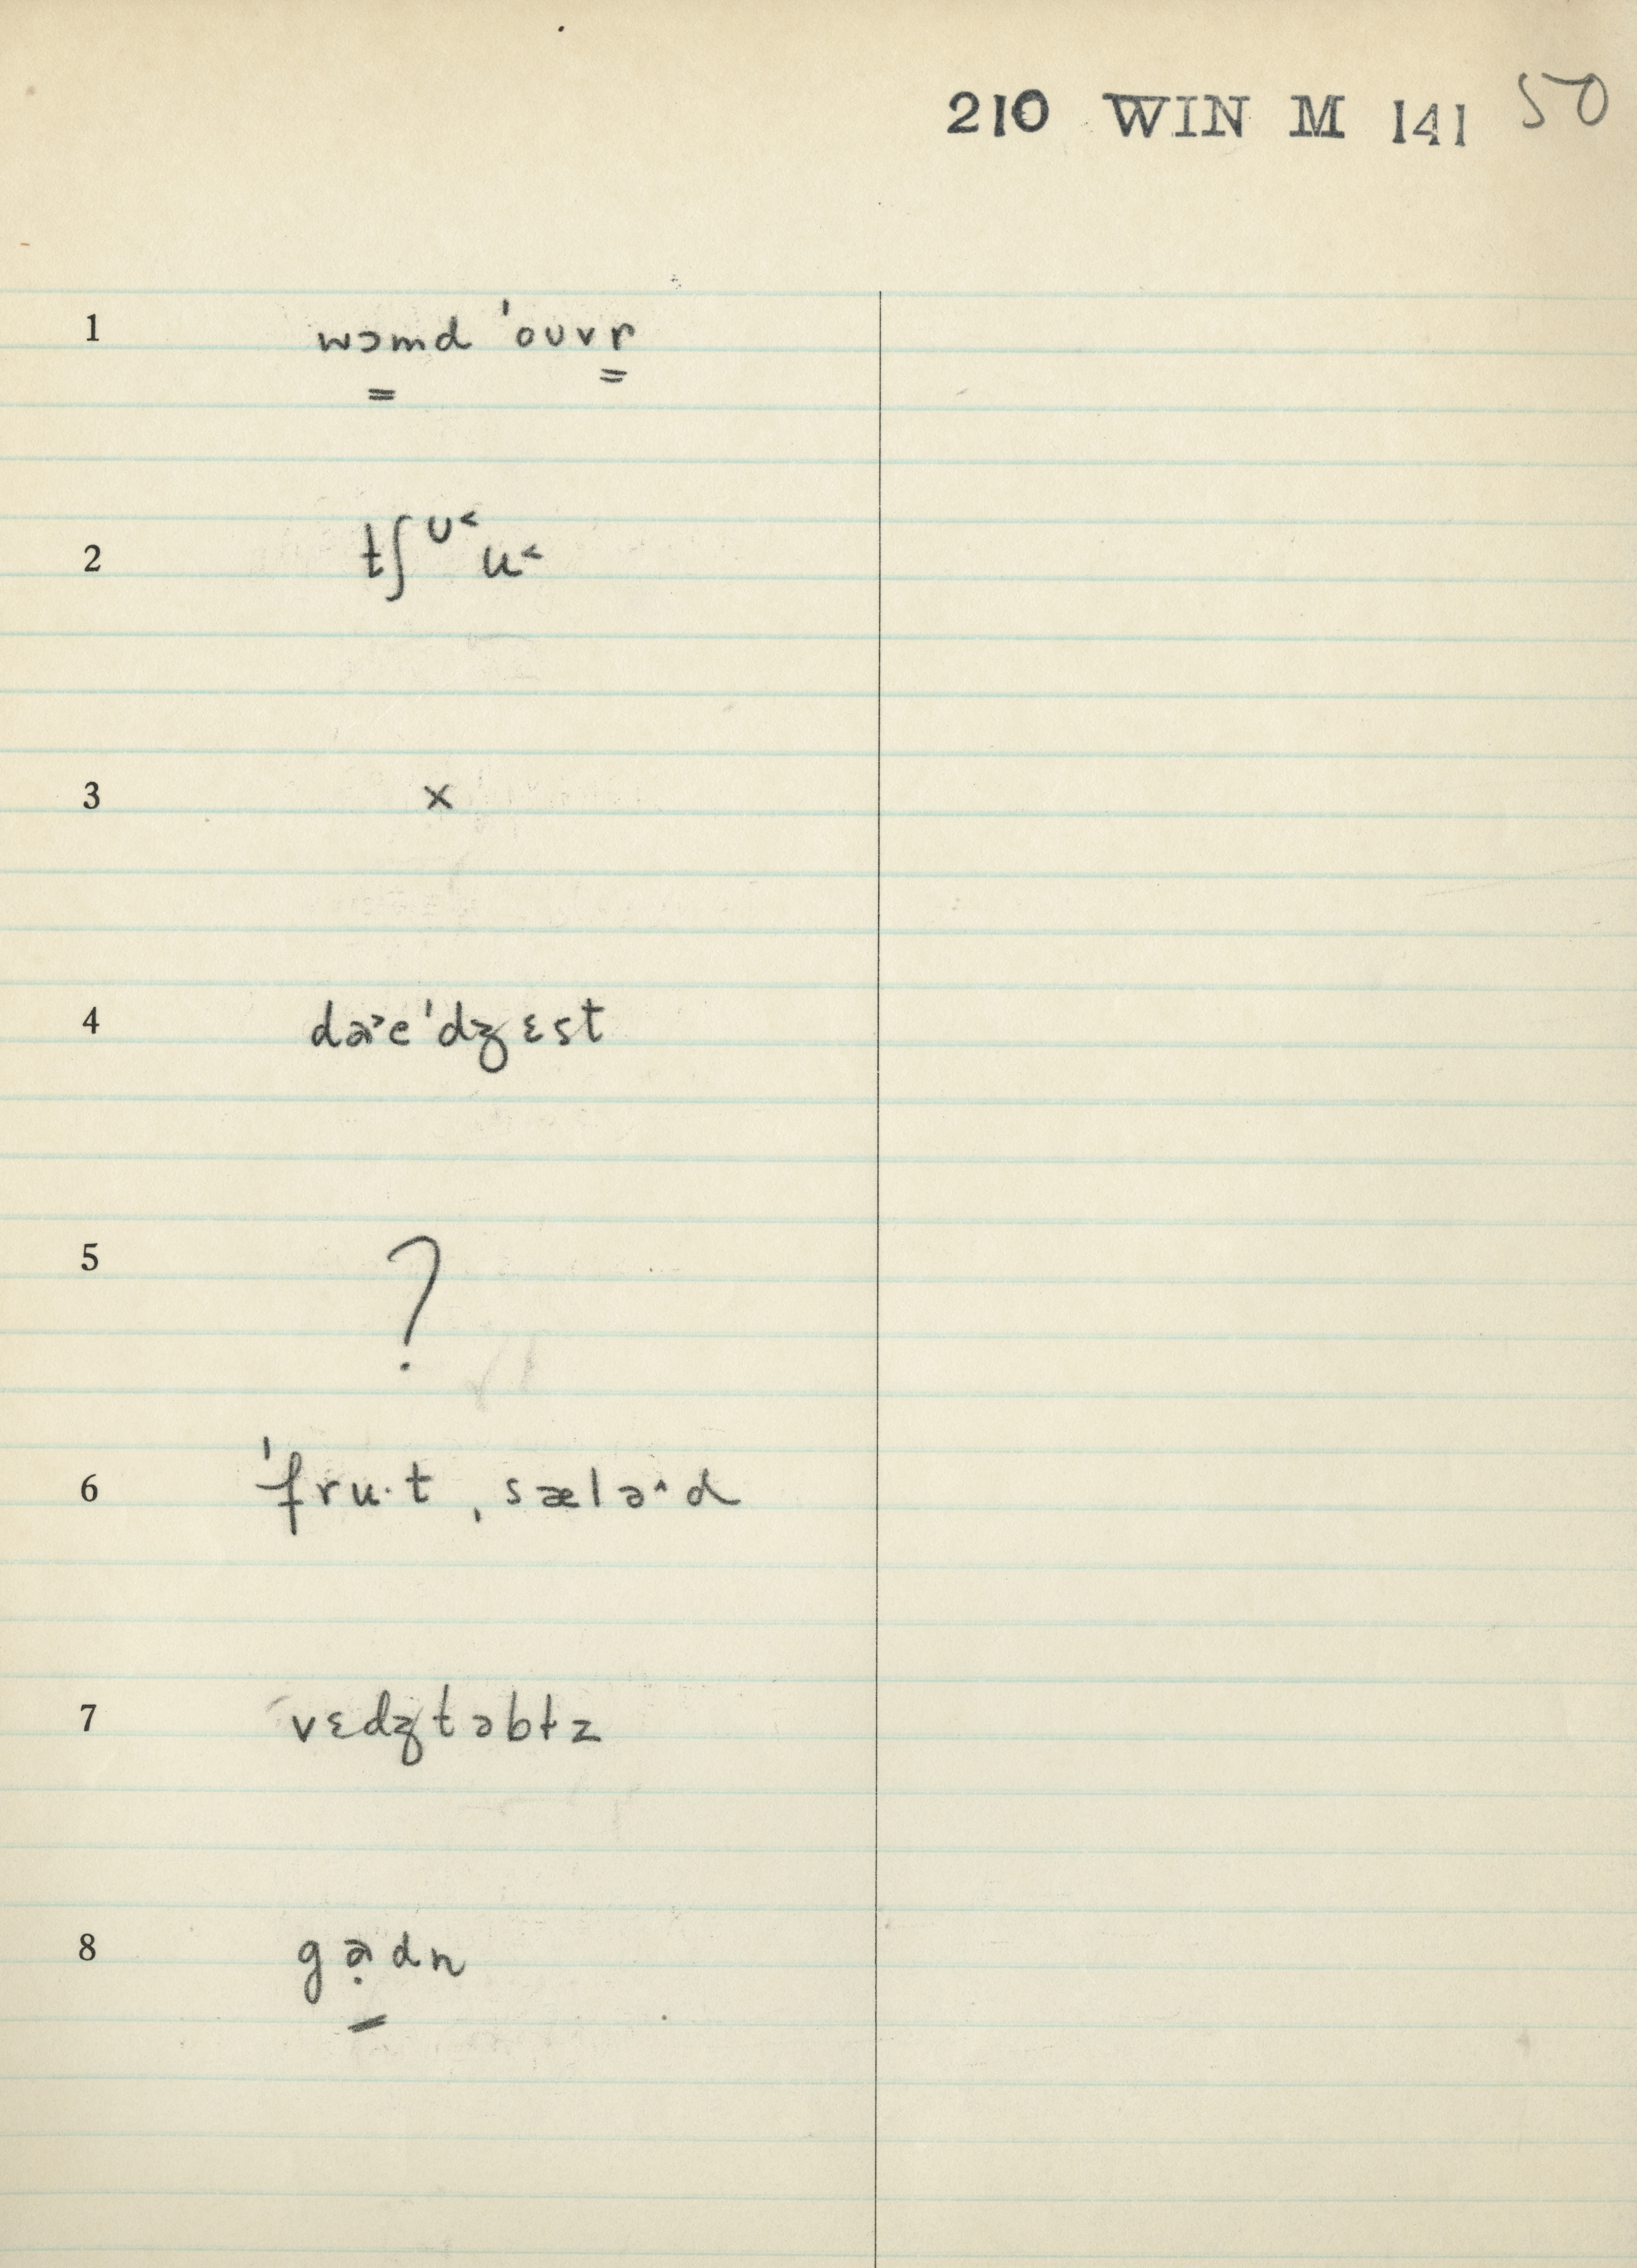 210 WIN M 141 50
1 wɔmd ˈouvr
2 tʃᶷ˂u˂
3 x
4 də˃eˈdʒɛst
5 ?
6 ˈfru·t ˌsælə˄d
7 vɛdʒtəbɫz
8 gə̣dn